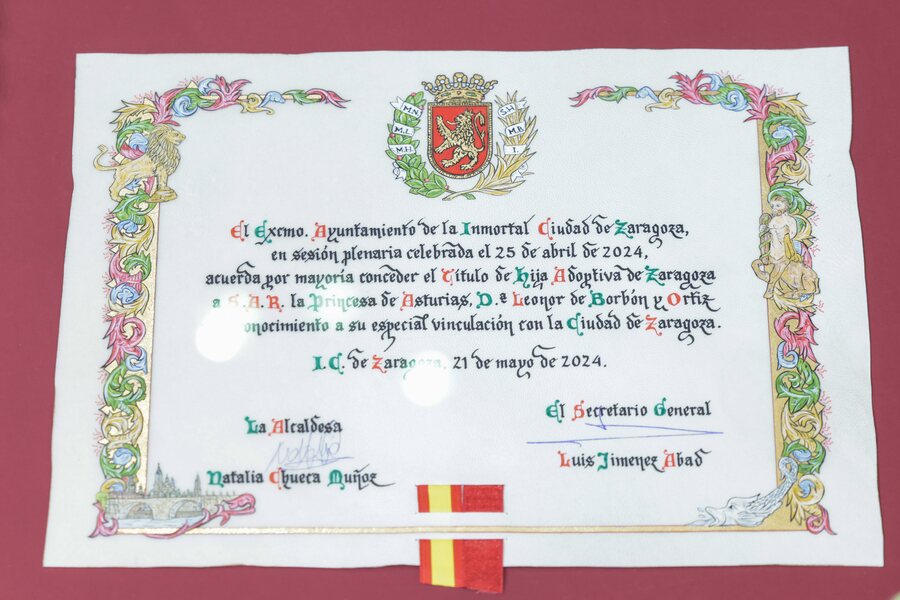 M.N.
M.L.
M.H.
S.H.
M.B.
I.
El Excmo. Ayuntamiento de la Inmortal Ciudad de Zaragoza,
en sesión plenaria celebrada el 25 de abril de 2024,
acuerda por mayoría conceder el Título de Hija Adoptiva de Zaragoza
a S.A.R. la Princesa de Asturias, D.ª Leonor de Borbón y Ortiz
onocimiento a su especial vinculación con la Ciudad de Zaragoza.
I.C. de Zaragoza, 21 de mayo de 2024.
La Alcaldesa
Natalia Chueca Muñoz
El Secretario General
Luis Jimenez Abad